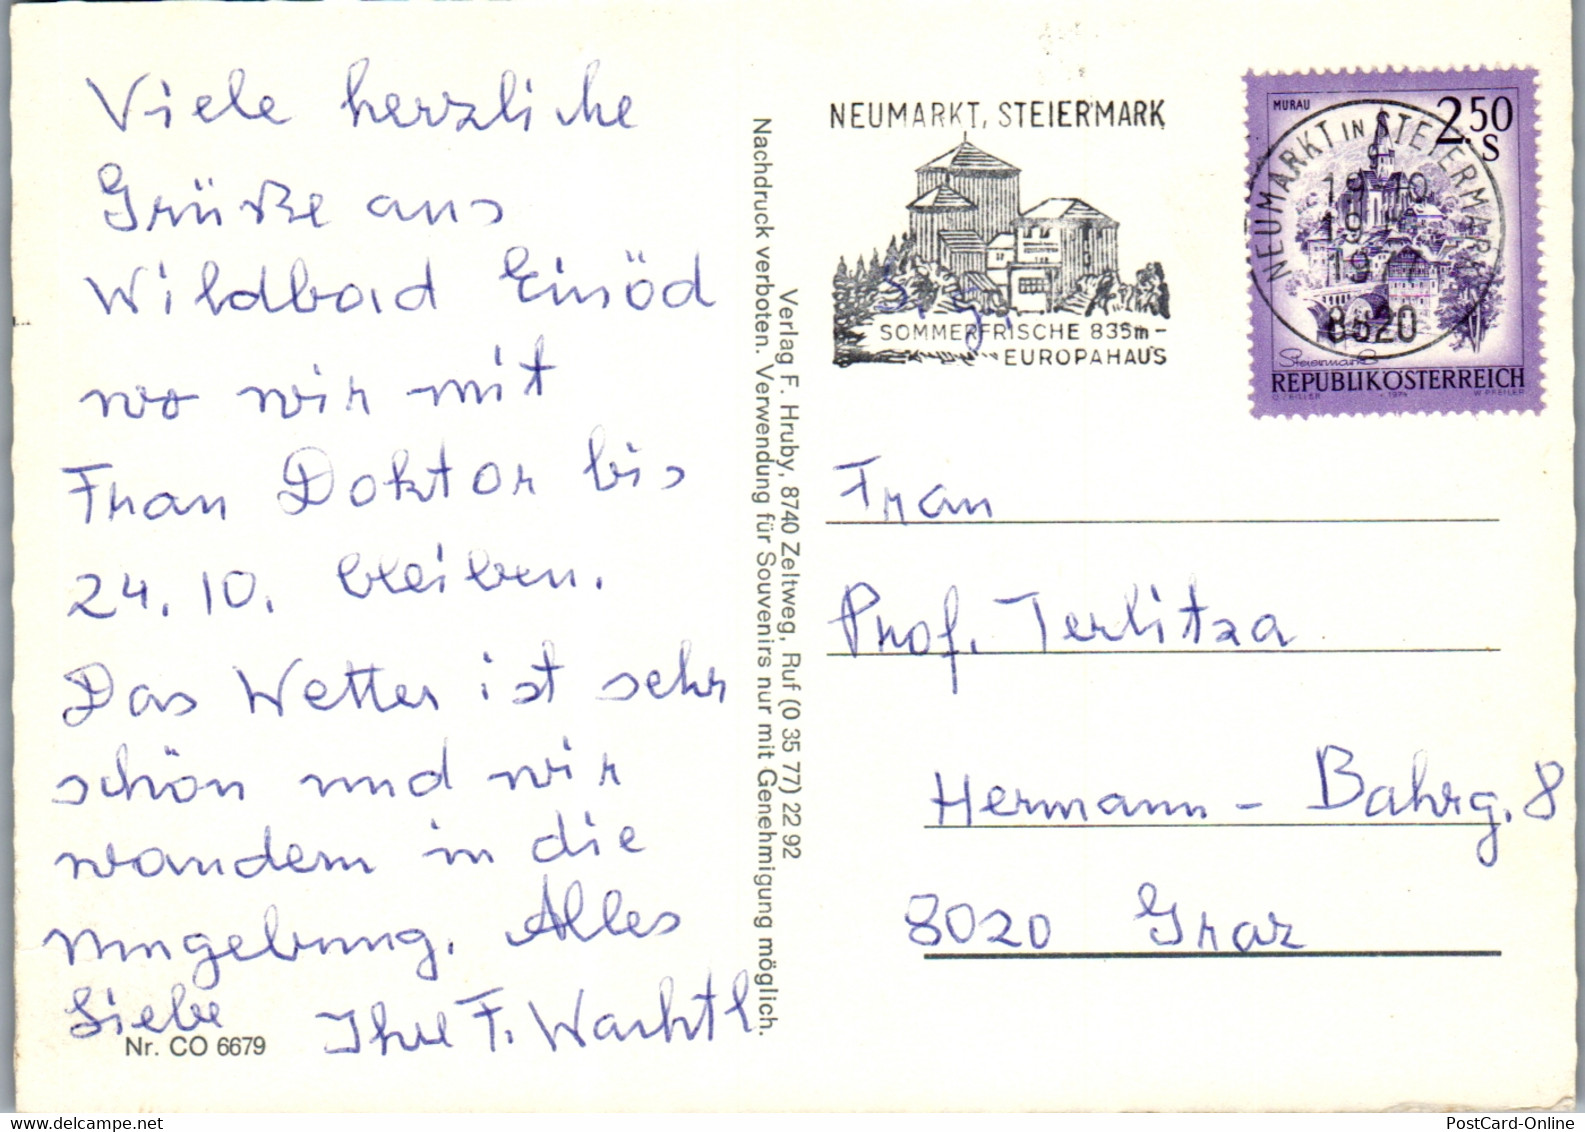 Viele herzliche
Grüße aus
Wildbad Einöd
wo wir mit
Frau Doktor bis
24. 10. bleiben.
Das Wetter ist sehr
schön und wir
wandern in die
Umgebung. Alles
Liebe Ihre F. Wachtl
Nr. CO 6679
Verlag F. Hruby, 8740 Zeltweg, Ruf (0 35 77) 22 92
Nachdruck verboten. Verwendung für Souvenirs nur mit Genehmigung möglich.
NEUMARKT, STEIERMARK
SOMMERFRISCHE 835m-
EUROPAHAUS
S. g.
MURAU
2.50
S
NEUMARKT IN STEIERMARK
19.10
8820
Steiermark
REPUBLIK ÖSTERREICH
O. ZEILLER 1974 W. PFEILER
Frau
Prof. Terlitza
Hermann-Bahrg. 8
8020 Graz
PostCard-Online